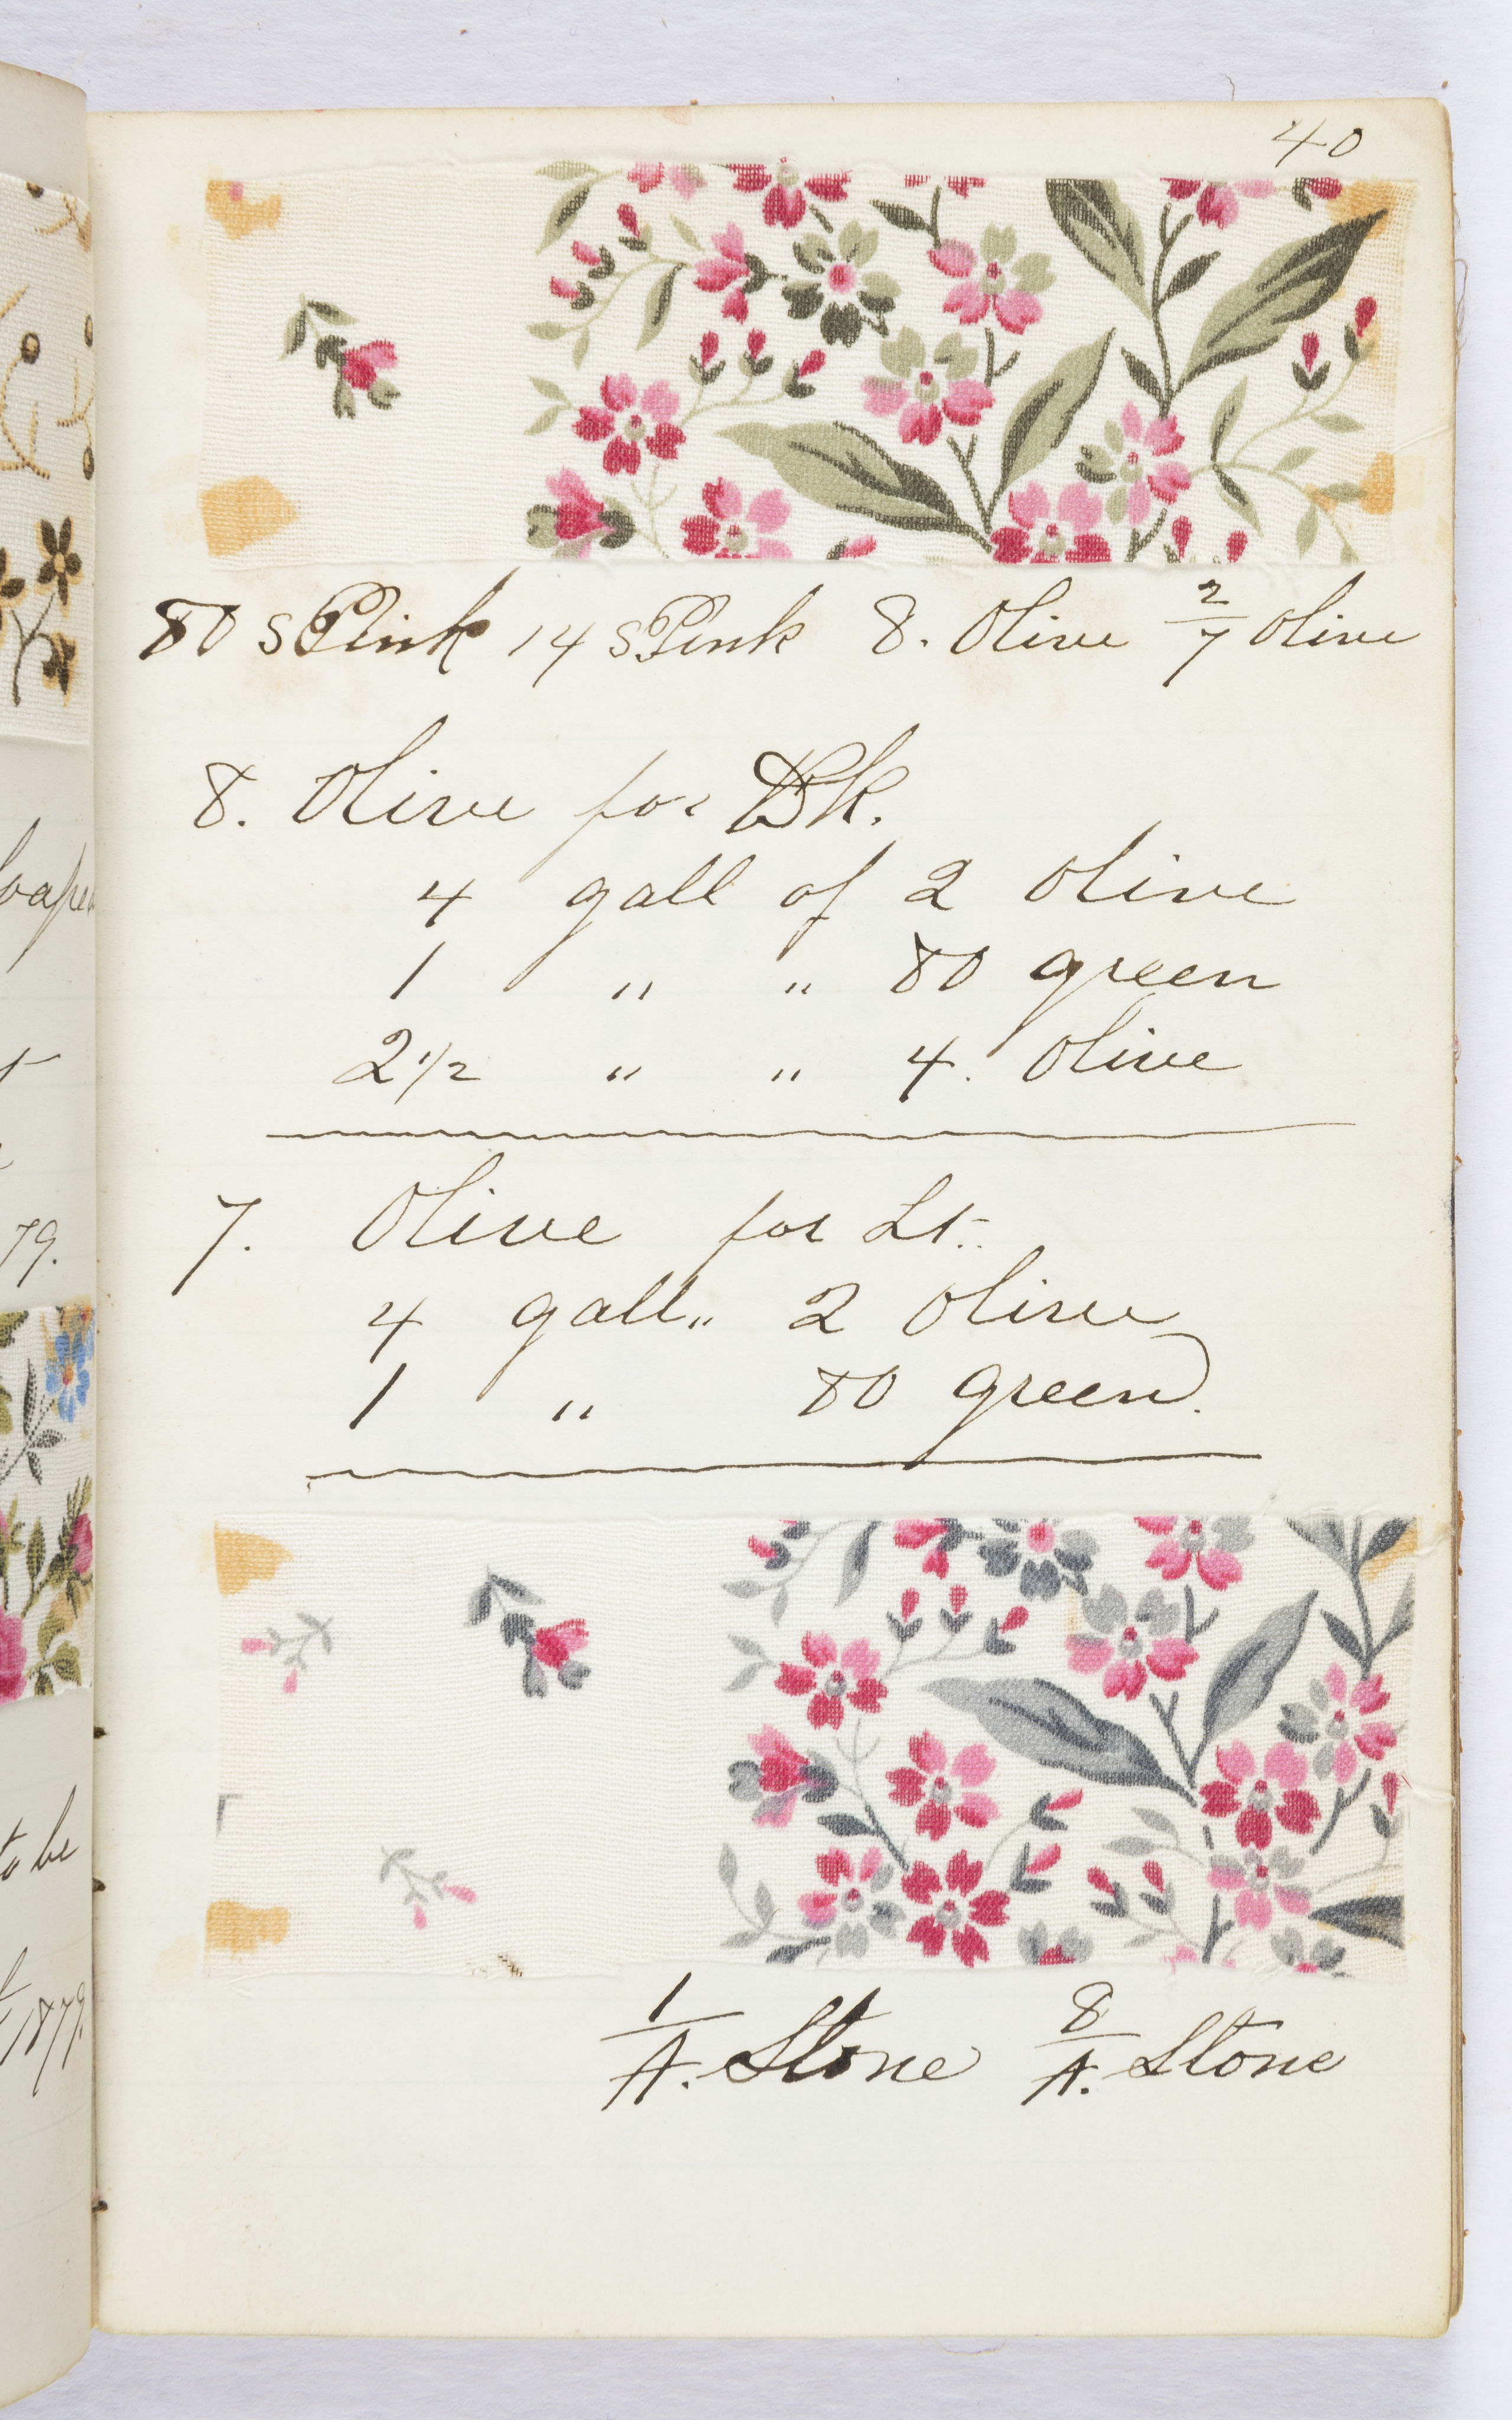 40
80 S Pink 14 S Pink 8. Olive 2/7 Olive
8. Olive for Dk.
4 gall of 2 Olive
1 " " 80 green
2 1/2 " " 4. Olive
7. Olive for Lt.
4 gall " 2 Olive
1 " 80 green.
1/A. Stone 8/A. Stone
79.
to be
1879.